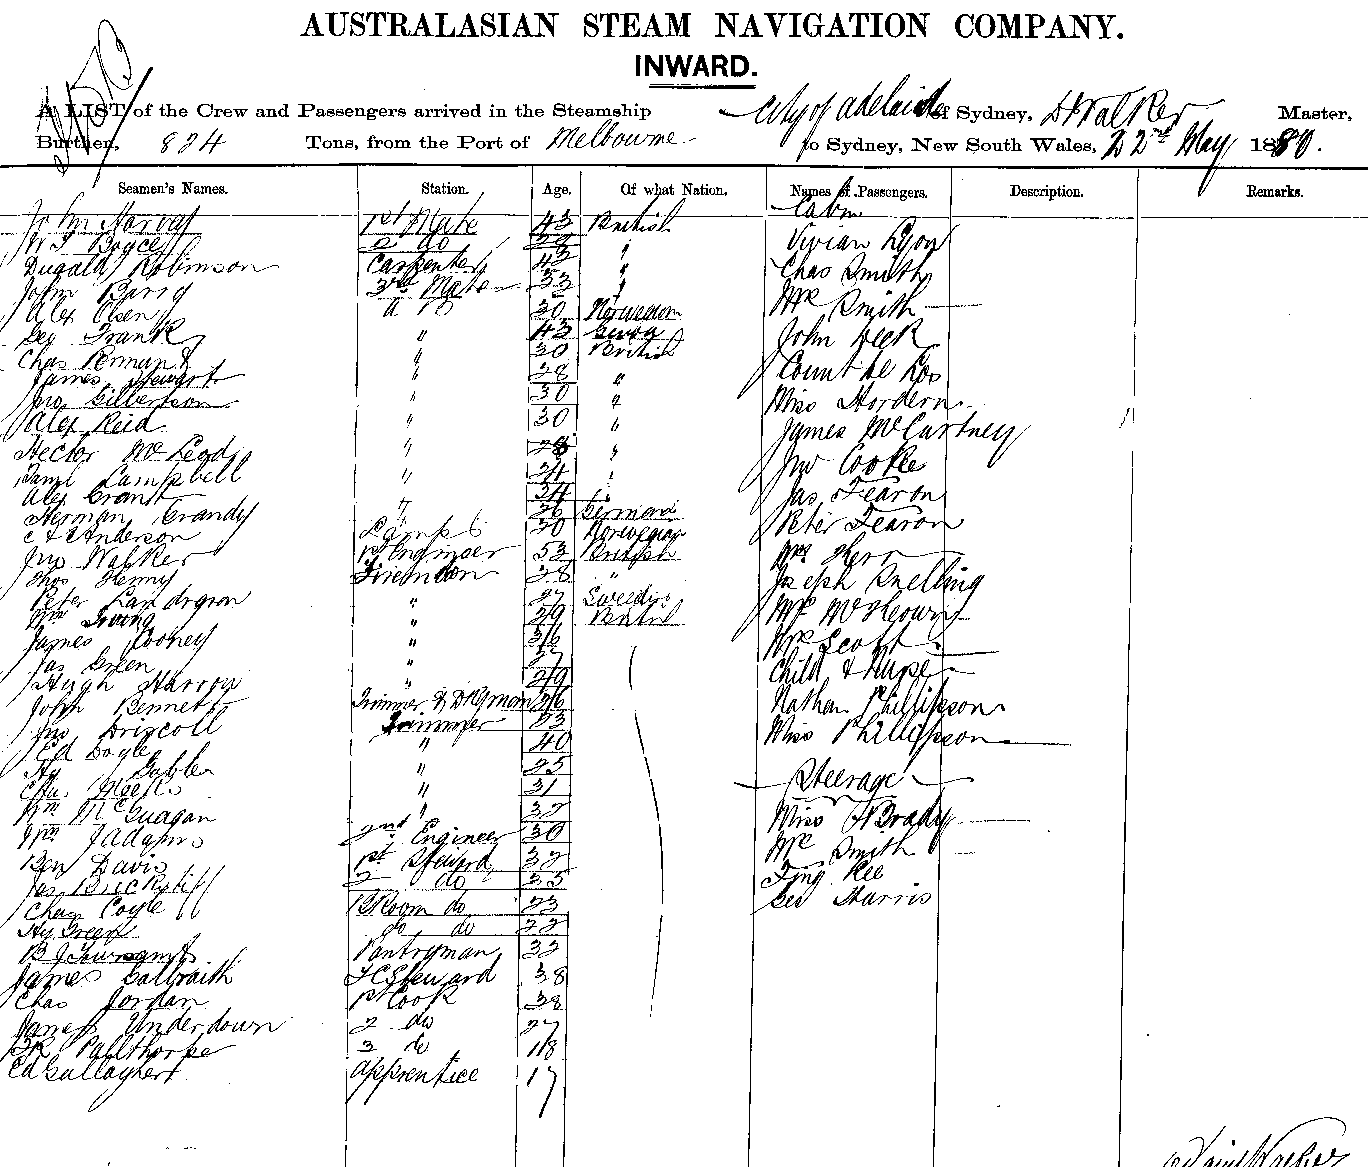 AUSTRALASIAN STEAM NAVIGATION COMPANY.
INWARD.
A LIST of the Crew and Passengers arrived in the Steamship City of Adelaide of Sydney, D Walker Master,
Burthen, 824 Tons, from the Port of Melbourne to Sydney, New South Wales, 22nd May 1880.
Seamen's Names. Station. Age. Of what Nation. Names of Passengers. Description. Remarks.
Cabin
John Harvey 1st Mate 43 British
W J Boyce 2 do 28 " Vivian Lyon
Dugald Robinson Carpenter 42 " Chas Smith
John Barry 3rd Mate 33 " Mr Smith
Alex Olsen A B 30 Norwegian
Geo Frank " 43 John
Chas " 30 British
James Stewart " 28 " Count de Ros
Jno Gilbertson " 30 " Miss Hordern
Alex Reid " 30 " James McCartney
Hector McLeod " 28 "
Campbell " 24 " Jno Cooke
Alex Grant " 24 " Jas Fearon
Herman Grandy " 26 German Peter Fearon
Anderson Lamps 30 Norwegian
Jno Walker 1st Engineer 53 British Kerr
Thos Henny Fireman 28 " Joseph Snelling
Peter " 27 Swedish
Wm Irving " 29 British
James Cooney " 36 Scott
Jas Green " 27 Child & Nurse
Hugh " 29
John Bennett Trimmer & Dkyman 26 Nathan Phillipson
Jno Driscoll Trimmer 23 Miss Phillipson
Ed Doyle " 40
Hy " 25 Steerage
Meeks " 31
Wm McGuagan " 37 Miss Brady
Wm J Adams 2nd Engineer 30 Mr Smith
Ben Davis 1st Steward 32
Jas 2 do 35 Kee
Chas Coyle B Room do 23 Geo Harris
Hy Green do do 22
B J Pantryman 32
James Galbraith F C Steward 38
Chas Jordan 1st Cook 38
James Underdown 2 do 27
Pallthorpe 3 do 18
Ed Gallagher Apprentice 17